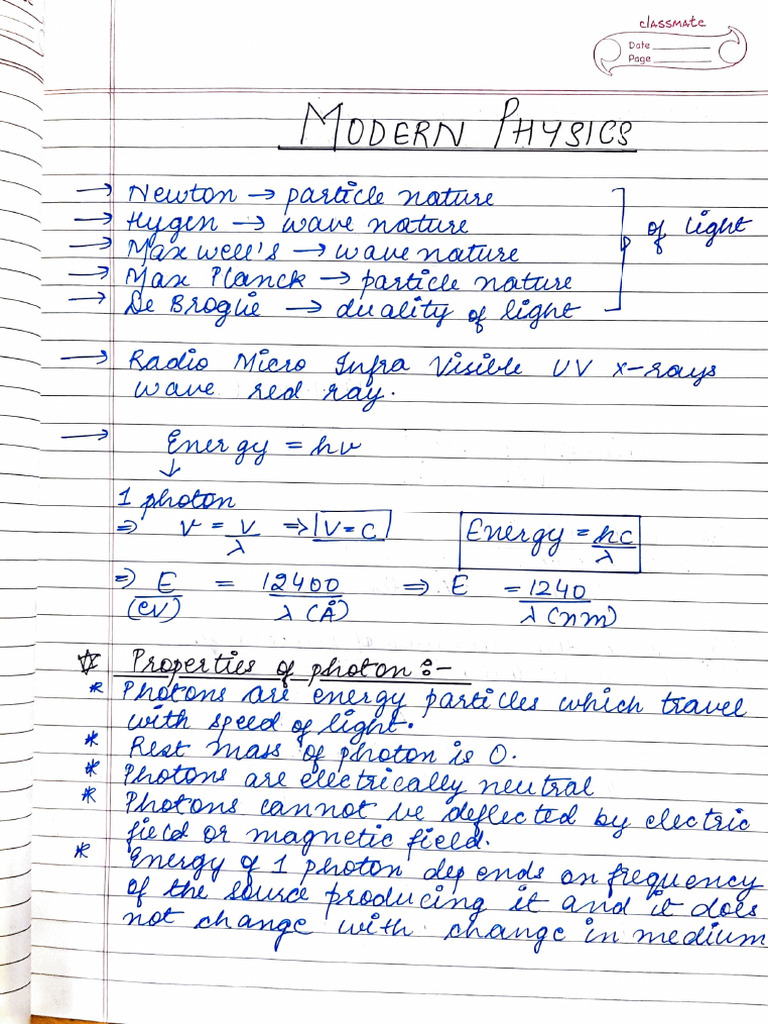 classmate
Date
Page
MODERN PHYSICS
→ Newton → particle nature
→ Hygen → wave nature
→ Maxwell's → wave nature
→ Max Planck → particle nature
→ De Broglie → duality of light
of light
→ Radio Micro Infra Visible UV x-rays
wave red ray.
→ Energy = hν
↓
1 photon
⇒ ν = V/λ ⇒ V = C Energy = hc/λ
⇒ E/(eV) = 12400/λ(Å) ⇒ E = 1240/λ(nm)
☆ Properties of photon :-
* Photons are energy particles which travel
with speed of light.
* Rest mass of photon is 0.
* Photons are electrically neutral
* Photons cannot be deflected by electric
field or magnetic field.
* Energy of 1 photon depends on frequency
of the source producing it and it does
not change with change in medium